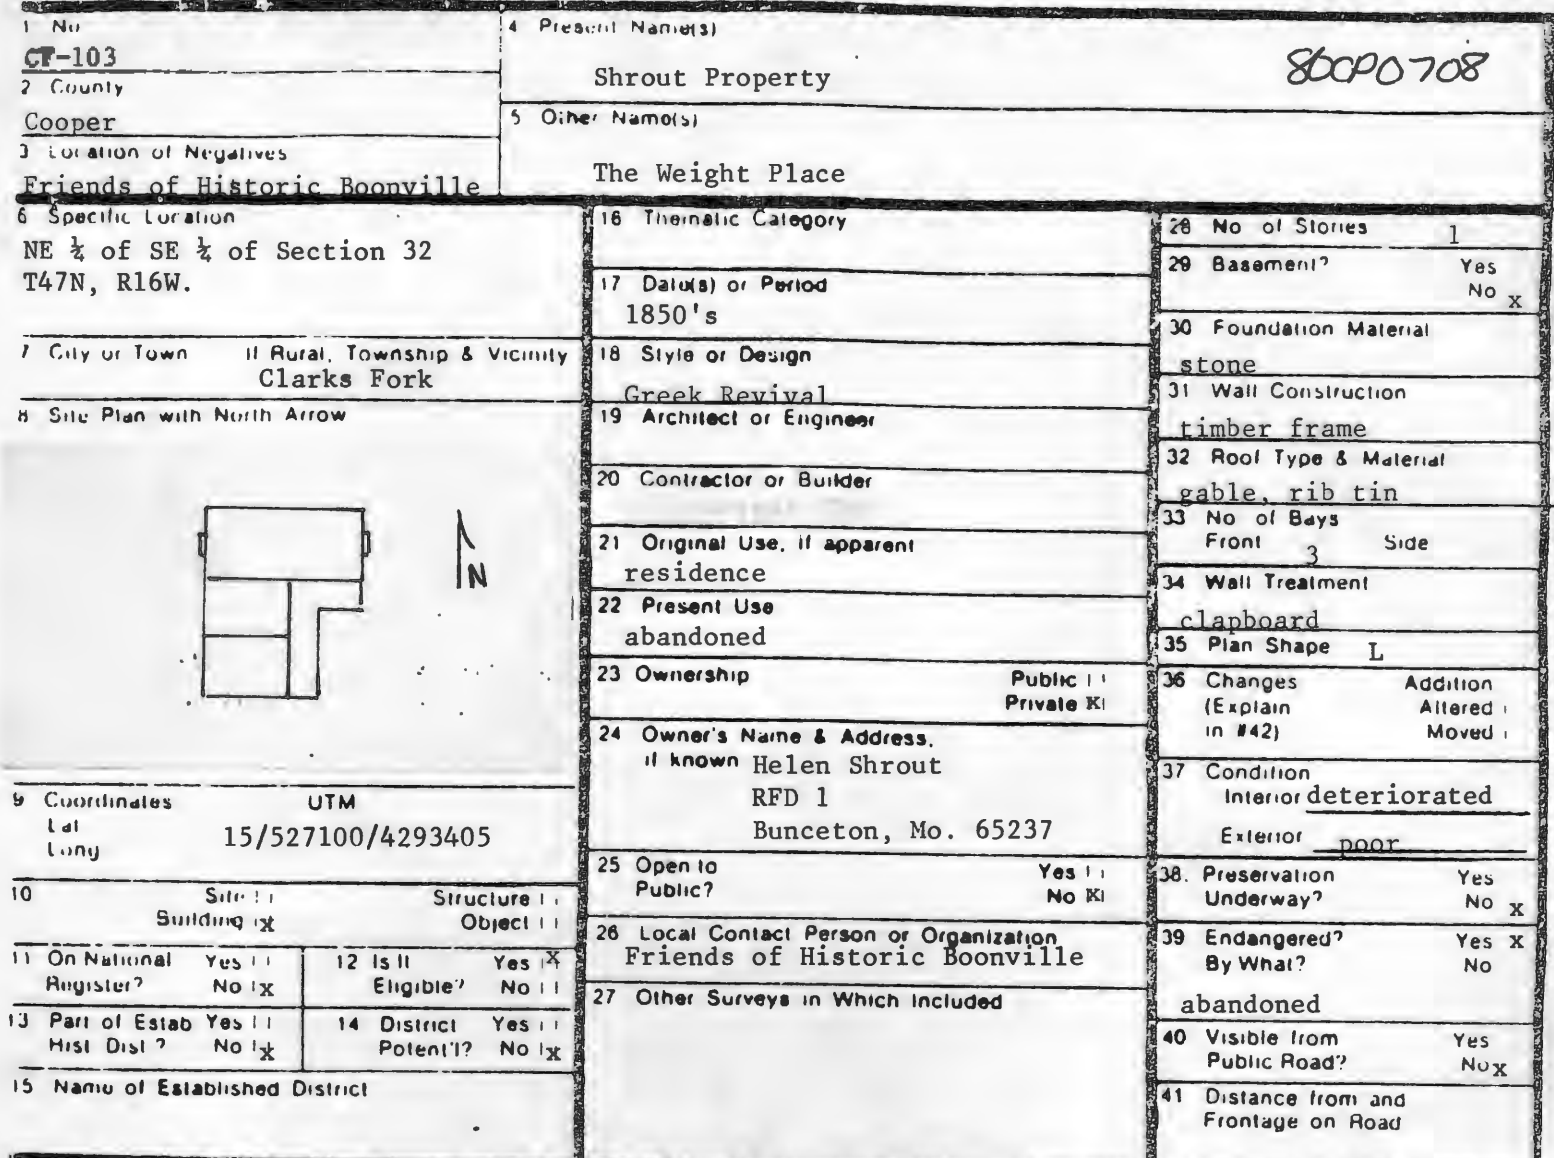 1 No
CF-103
4 Present Name(s)
Shrout Property
80CP0708
2 County
Cooper
5 Other Name(s)
The Weight Place
3 Location of Negatives
Friends of Historic Boonville
6 Specific Location
NE ¼ of SE ¼ of Section 32
T47N, R16W.
7 City or Town If Rural, Township & Vicinity
Clarks Fork
8 Site Plan with North Arrow
N
9 Coordinates UTM
Lat
Long
15/527100/4293405
10 Site Structure
Building x Object
11 On National Yes
Register? No x
12 Is It Yes X
Eligible? No
13 Part of Estab Yes
Hist Dist? No x
14 District Yes
Potent'l? No x
15 Name of Established District
16 Thematic Category
17 Date(s) or Period
1850's
18 Style or Design
Greek Revival
19 Architect or Engineer
20 Contractor or Builder
21 Original Use, if apparent
residence
22 Present Use
abandoned
23 Ownership Public
Private X
24 Owner's Name & Address,
if known Helen Shrout
RFD 1
Bunceton, Mo. 65237
25 Open to Yes
Public? No X
26 Local Contact Person or Organization
Friends of Historic Boonville
27 Other Surveys in Which Included
28 No of Stories 1
29 Basement? Yes
No x
30 Foundation Material
stone
31 Wall Construction
timber frame
32 Roof Type & Material
gable, rib tin
33 No of Bays
Front 3 Side
34 Wall Treatment
clapboard
35 Plan Shape L
36 Changes Addition
(Explain Altered
in #42) Moved
37 Condition
Interior deteriorated
Exterior poor
38. Preservation Yes
Underway? No x
39 Endangered? Yes x
By What? No
abandoned
40 Visible from Yes
Public Road? No x
41 Distance from and
Frontage on Road